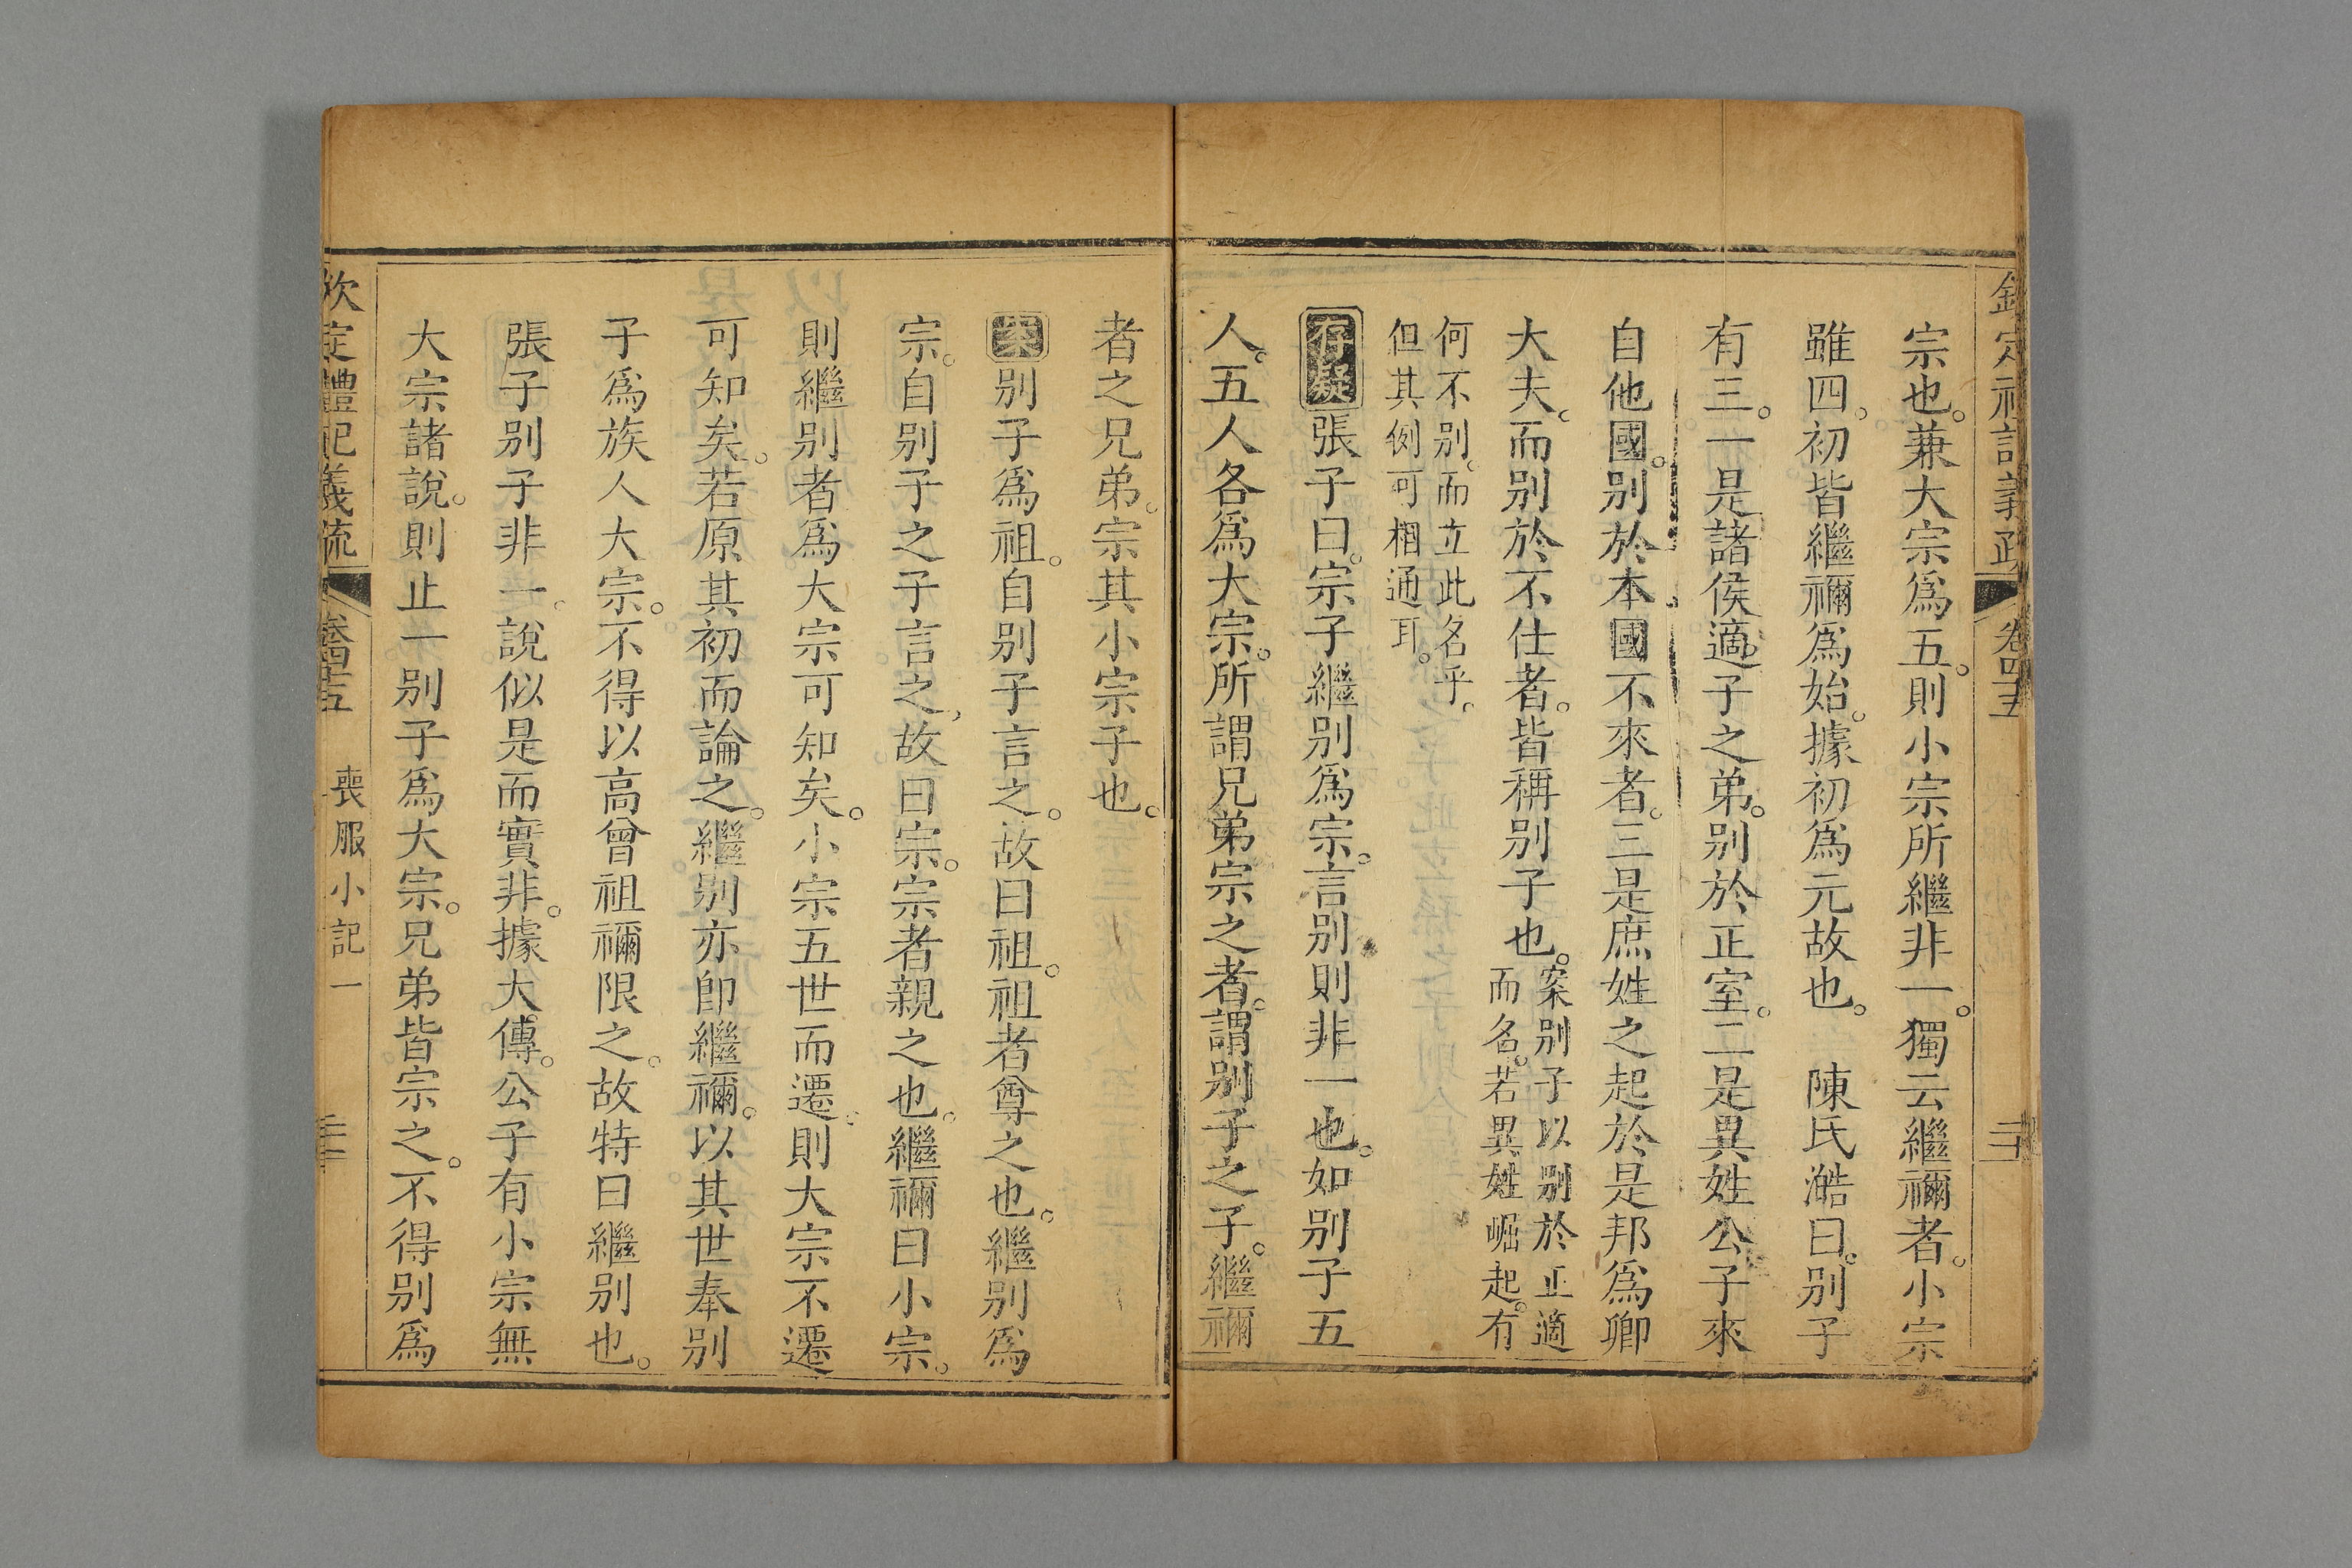 欽定禮記義疏 卷四十五 二十
宗也。兼大宗爲五。則小宗所繼非一。獨云繼禰者。小宗
雖四。初皆繼禰爲始。據初爲元故也。 陳氏澔曰。別子
有三。一是諸侯適子之弟。別於正室。二是異姓公子來
自他國。別於本國不來者。三是庶姓之起於是邦爲卿
大夫。而別於不仕者。皆稱別子也。
案別子以別於正適
而名。若異姓崛起。有
何不別。而立此名乎。
但其例可相通耳。
存疑張子曰。宗子繼別爲宗。言別則非一也。如別子五
人。五人各爲大宗。所謂兄弟宗之者。謂別子之子。繼禰
者之兄弟。宗其小宗子也。
案別子爲祖。自別子言之。故曰祖。祖者尊之也。繼別爲
宗。自別子之子言之、故曰宗。宗者親之也。繼禰曰小宗。
則繼別者爲大宗可知矣。小宗五世而遷。則大宗不遷
可知矣。若原其初而論之。繼別亦卽繼禰。以其世奉別
子爲族人大宗。不得以高曾祖禰限之。故特曰繼別也。
張子別子非一。說似是而實非。據大傳。公子有小宗無
大宗諸說。則止一別子爲大宗。兄弟皆宗之。不得別爲
欽定禮記義疏 卷四十五 喪服小記一